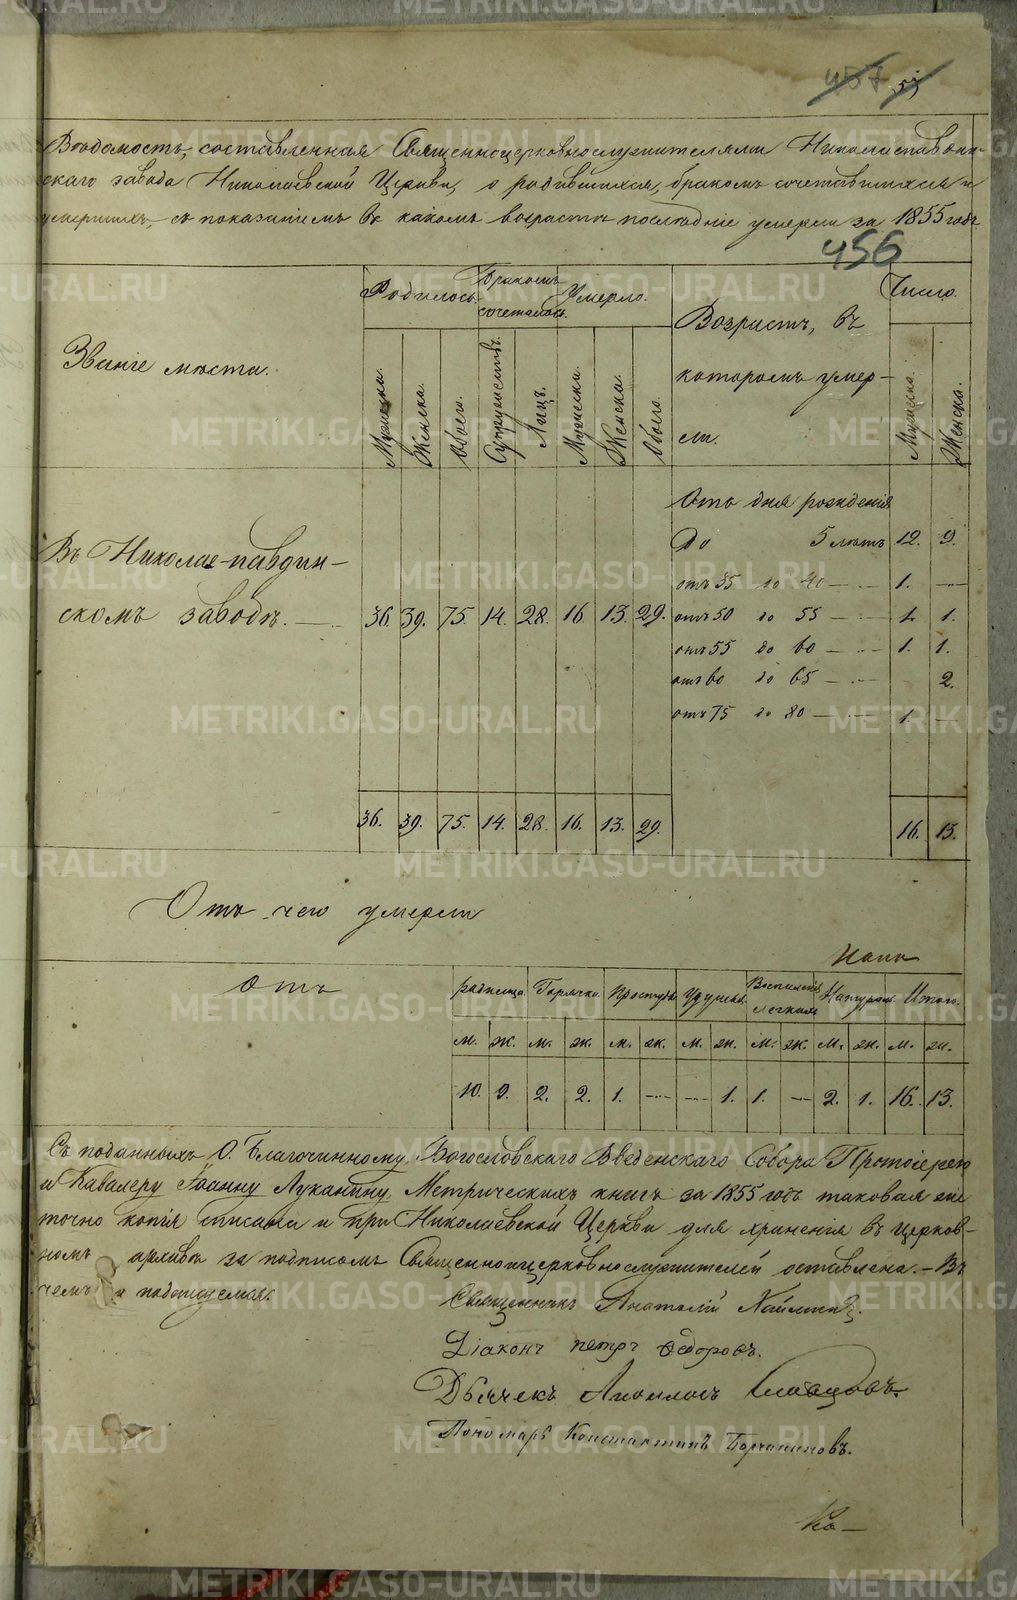 457 55
Вѣдомость, составленная Священноцерковнослужителями Николаепавдин-
скаго завода Николаевской Церкви, о родившихся, бракомъ сочетавшихся и
умершихъ, съ показаніемъ въ какомъ возрастѣ послѣдніе умерли за 1855 годъ
456
Званіе мѣста. Родилось. Бракомъ сочеталось. Умерло. Возрастъ, въ которомъ умер-ли. Число.
Мужеска. Женска. Обоего. Супружествъ. Лицъ. Мужеска. Женска. Обоего. Мужеска. Женска.
Отъ дня рожденія
до 5 лѣтъ 12. 9.
отъ 35 до 40 — 1. —
Въ Николае-павдин-
скомъ заводѣ. 36. 39. 75. 14. 28. 16. 13. 29. отъ 50 до 55 — 1. 1.
отъ 55 до 60 — 1. 1.
отъ 60 до 65 — 2.
отъ 75 до 80 — 1. —
36. 39. 75. 14. 28. 16. 13. 29. 16. 13.
Отъ чего умерли
Отъ родимца. Горячки. Простуды. Удушья. Воспаленія легкихъ Натурально. Итого.
м. ж. м. ж. м. ж. м. ж. м. ж. м. ж. м. ж.
10. 9. 2. 2. 1. — — 1. 1. — 2. 1. 16. 13.
Съ поданныхъ О. Благочинному Богословскаго Введенскаго Собора Протоіерею
и Кавалеру Іоанну Луканину Метрическихъ книгъ за 1855 годъ таковая же
точно копія списана и при Николаевской Церкви для храненія въ церков-
номъ архивѣ за подписомъ Священноцерковнослужителей оставлена. — Въ
чемъ и подписуемся.
Священникъ Анатолій
Діаконъ Петръ Ѳедоровъ.
Дьячекъ Аполлосъ Словцовъ.
Пономарь Константинъ
Ко—
METRIKI.GASO-URAL.RU